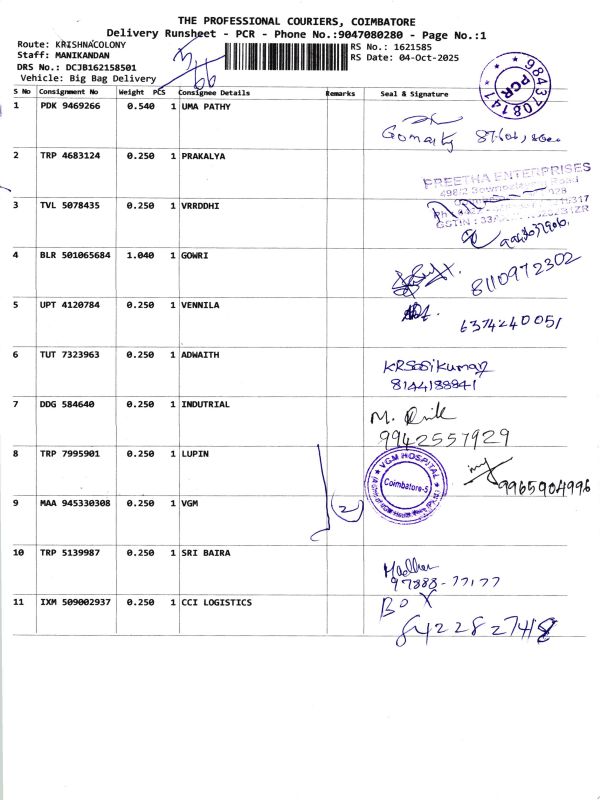 THE PROFESSIONAL COURIERS, COIMBATORE
Delivery Runsheet - PCR - Phone No.:9047080280 - Page No.:1
Route: KRISHNACOLONY
Staff: MANIKANDAN
DRS No.: DCJB162158501
Vehicle: Big Bag Delivery
RS No.: 1621585
RS Date: 04-Oct-2025
9843708141
PCR
S No Consignment No Weight PCS Consignee Details Remarks Seal & Signature
1 PDK 9469266 0.540 1 UMA PATHY
Gomathy
2 TRP 4683124 0.250 1 PRAKALYA
PREETHA ENTERPRISES
3 TVL 5078435 0.250 1 VRRDDHI
4 BLR 501065684 1.040 1 GOWRI
8110972302
5 UPT 4120784 0.250 1 VENNILA
6374240051
6 TUT 7323963 0.250 1 ADWAITH
KRSasikumar
8144188941
7 DDG 584640 0.250 1 INDUTRIAL
9942557929
8 TRP 7995901 0.250 1 LUPIN
VGM HOSPITAL
Coimbatore-5
9965904996
9 MAA 945330308 0.250 1 VGM
2
10 TRP 5139987 0.250 1 SRI BAIRA
97888-77177
11 IXM 509002937 0.250 1 CCI LOGISTICS
BOX
8422827418